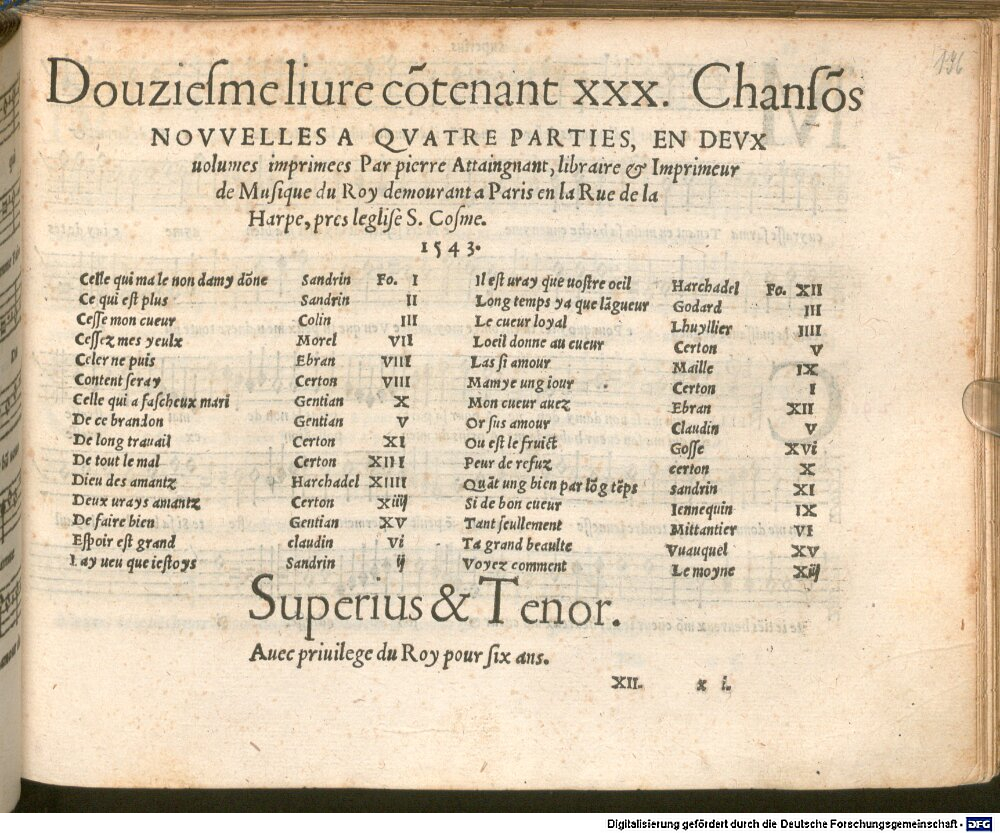 196
Douziesme liure cõtenant xxx. Chansõs
NOVVELLES A QVATRE PARTIES, EN DEVX
uolumes imprimees Par pierre Attaingnant, libraire & Imprimeur
de Musique du Roy demourant a Paris en la Rue de la
Harpe, pres leglise S. Cosme.
1543.
Celle qui ma le non damy dõne Sandrin Fo. I
Ce qui est plus Sandrin II
Cesse mon cueur Colin III
Cessez mes yeulx Morel VII
Celer ne puis Ebran VIII
Content seray Certon VIII
Celle qui a fascheux mari Gentian X
De ce brandon Gentian V
De long trauail Certon XI
De tout le mal Certon XIII
Dieu des amantz Harchadel XIIII
Deux urays amantz Certon Xiiij
De faire bien Gentian XV
Espoir est grand claudin Vi
I ay ueu que iestoys Sandrin ij
Il est uray que uostre oeil Harchadel Fo. XII
Long temps ya que lãgueur Godard III
Le cueur loyal Lhuyllier IIII
Loeil donne au cueur Certon V
Las si amour Maille IX
Mamye ung iour Certon I
Mon cueur auez Ebran XII
Or sus amour Claudin V
Ou est le fruict Gosse XVi
Peur de refuz certon X
Quãt ung bien par lõg tẽps sandrin XI
Si de bon cueur Iennequin IX
Tant seullement Mittantier VI
Ta grand beaulte Vuauquel XV
Voyez comment Le moyne Xiij
Superius & Tenor.
Auec priuilege du Roy pour six ans.
XII. x i.
Digitalisierung gefördert durch die Deutsche Forschungsgemeinschaft - DFG